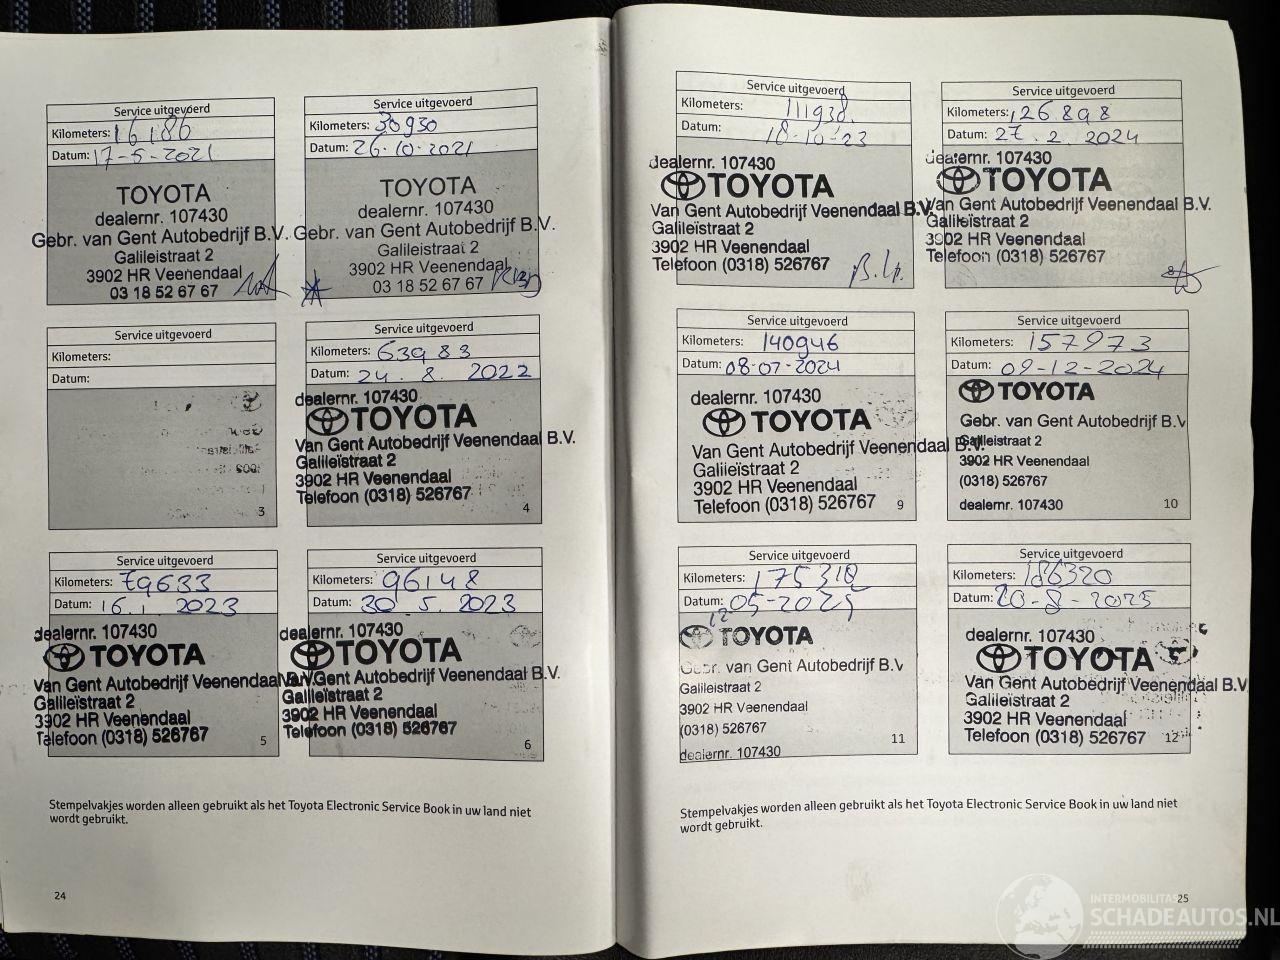 Service uitgevoerd
Kilometers: 16186
Datum: 17-5-2021
TOYOTA
dealernr. 107430
Gebr. van Gent Autobedrijf B.V.
Galileistraat 2
3902 HR Veenendaal
03 18 52 67 67
Service uitgevoerd
Kilometers: 30930
Datum: 26-10-2021
TOYOTA
dealernr. 107430
Gebr. van Gent Autobedrijf B.V.
Galileistraat 2
3902 HR Veenendaal
03 18 52 67 67
Service uitgevoerd
Kilometers:
Datum:
3
Service uitgevoerd
Kilometers: 63983
Datum: 24.8.2022
dealernr. 107430
TOYOTA
Van Gent Autobedrijf Veenendaal B.V.
Galileïstraat 2
3902 HR Veenendaal
Telefoon (0318) 526767
4
Service uitgevoerd
Kilometers: 79633
Datum: 16.1.2023
dealernr. 107430
TOYOTA
Van Gent Autobedrijf Veenendaal B.V.
Galileïstraat 2
3902 HR Veenendaal
Telefoon (0318) 526767
5
Service uitgevoerd
Kilometers: 96148
Datum: 30.5.2023
dealernr. 107430
TOYOTA
Van Gent Autobedrijf Veenendaal B.V.
Galileïstraat 2
3902 HR Veenendaal
Telefoon (0318) 526767
6
Stempelvakjes worden alleen gebruikt als het Toyota Electronic Service Book in uw land niet
wordt gebruikt.
24
Service uitgevoerd
Kilometers: 111938.
Datum: 18-10-23
dealernr. 107430
TOYOTA
Van Gent Autobedrijf Veenendaal B.V.
Galileïstraat 2
3902 HR Veenendaal
Telefoon (0318) 526767
Service uitgevoerd
Kilometers: 126898
Datum: 27.2.2024
dealernr. 107430
TOYOTA
Van Gent Autobedrijf Veenendaal B.V.
Galileïstraat 2
3902 HR Veenendaal
Telefoon (0318) 526767
8
Service uitgevoerd
Kilometers: 140946
Datum: 08-07-2024
dealernr. 107430
TOYOTA
Van Gent Autobedrijf Veenendaal B.V.
Galileïstraat 2
3902 HR Veenendaal
Telefoon (0318) 526767
9
Service uitgevoerd
Kilometers: 157973
Datum: 09-12-2024
TOYOTA
Gebr. van Gent Autobedrijf B.V
Galileistraat 2
3902 HR Veenendaal
(0318) 526767
dealernr. 107430
10
Service uitgevoerd
Kilometers: 175310
Datum: 05-2025
12
TOYOTA
Gebr. van Gent Autobedrijf B.V
Galileistraat 2
3902 HR Veenendaal
(0318) 526767
dealernr. 107430
11
Service uitgevoerd
Kilometers: 186320
Datum: 20-8-2025
dealernr. 107430
TOYOTA
Van Gent Autobedrijf Veenendaal B.V.
Galileïstraat 2
3902 HR Veenendaal
Telefoon (0318) 526767
12
Stempelvakjes worden alleen gebruikt als het Toyota Electronic Service Book in uw land niet
wordt gebruikt.
25
INTERMOBILITAS
SCHADEAUTOS.NL